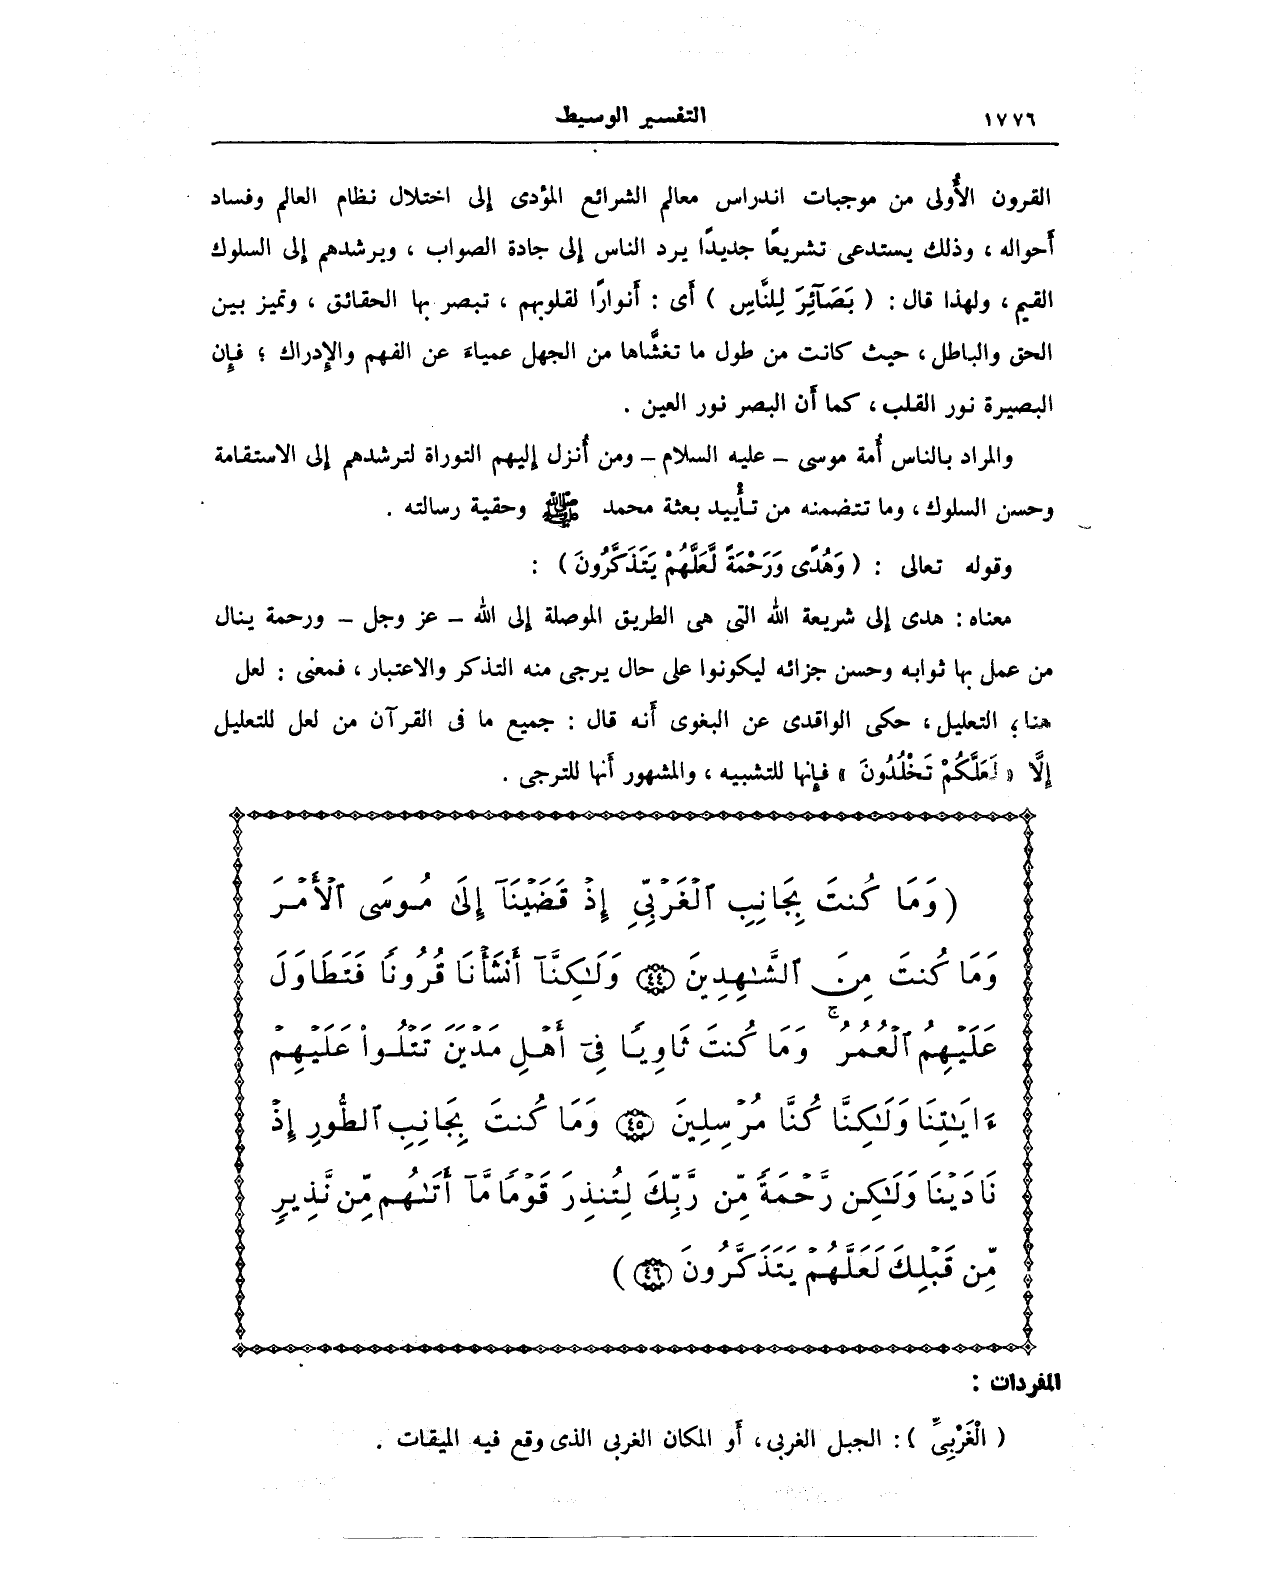 ١٧٧٦ التفسير الوسيط
القرون الأُولى من موجبات اندراس معالم الشرائع المؤدى إلى اختلال نظام العالم وفساد
أحواله ، وذلك يستدعى تشريعًا جديدًا يرد الناس إلى جادة الصواب ، ويرشدهم إلى السلوك
القيم ، ولهذا قال : ( بَصَآئِرَ لِلنَّاسِ ) أى : أنوارًا لقلوبهم ، تبصر بها الحقائق ، وتميز بين
الحق والباطل ، حيث كانت من طول ما تغشَّاها من الجهل عمياءَ عن الفهم والإدراك ؛ فإن
البصيرة نور القلب ، كما أن البصر نور العين .
والمراد بالناس أُمة موسى – عليه السلام – ومن أُنزل إليهم التوراة لترشدهم إلى الاستقامة
وحسن السلوك ، وما تتضمنه من تأْييد بعثة محمد ﷺ وحقية رسالته .
وقوله تعالى : ( وَهُدًى وَرَحْمَةً لَّعَلَّهُمْ يَتَذَكَّرُونَ ) :
معناه : هدى إلى شريعة الله التى هى الطريق الموصلة إلى الله – عز وجل – ورحمة ينال
من عمل بها ثوابه وحسن جزائه ليكونوا على حال يرجى منه التذكر والاعتبار ، فمعنى : لعل
هنا ؛ التعليل ، حكى الواقدى عن البغوى أنه قال : جميع ما فى القرآن من لعل للتعليل
إلَّا « لَعَلَّكُمْ تَخْلُدُونَ » فإنها للتشبيه ، والمشهور أنها للترجى .
( وَمَا كُنتَ بِجَانِبِ ٱلْغَرْبِيِّ إِذْ قَضَيْنَآ إِلَىٰ مُوسَى ٱلْأَمْرَ
وَمَا كُنتَ مِنَ ٱلشَّٰهِدِينَ ﴿٤٤﴾ وَلَٰكِنَّآ أَنشَأْنَا قُرُونًا فَتَطَاوَلَ
عَلَيْهِمُ ٱلْعُمُرُ ۚ وَمَا كُنتَ ثَاوِيًا فِىٓ أَهْلِ مَدْيَنَ تَتْلُوا۟ عَلَيْهِمْ
ءَايَٰتِنَا وَلَٰكِنَّا كُنَّا مُرْسِلِينَ ﴿٤٥﴾ وَمَا كُنتَ بِجَانِبِ ٱلطُّورِ إِذْ
نَادَيْنَا وَلَٰكِن رَّحْمَةً مِّن رَّبِّكَ لِتُنذِرَ قَوْمًا مَّآ أَتَىٰهُم مِّن نَّذِيرٍ
مِّن قَبْلِكَ لَعَلَّهُمْ يَتَذَكَّرُونَ ﴿٤٦﴾ )
المفردات :
( الْغَرْبِىِّ ) : الجبل الغربى ، أو المكان الغربى الذى وقع فيه الميقات .